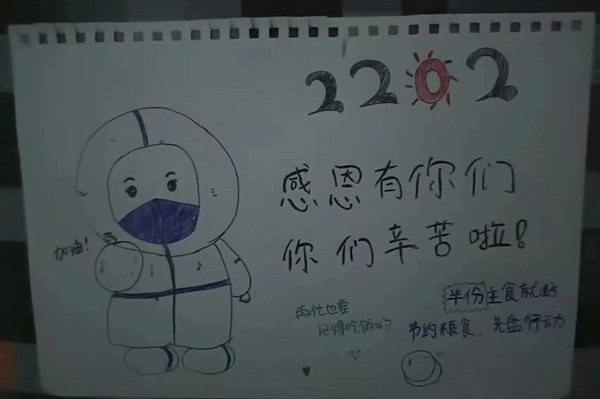 2202
感恩有你们
你们辛苦啦!
加油!
再忙也要
记得吃饭哟
半份主食就好
节约粮食、光盘行动